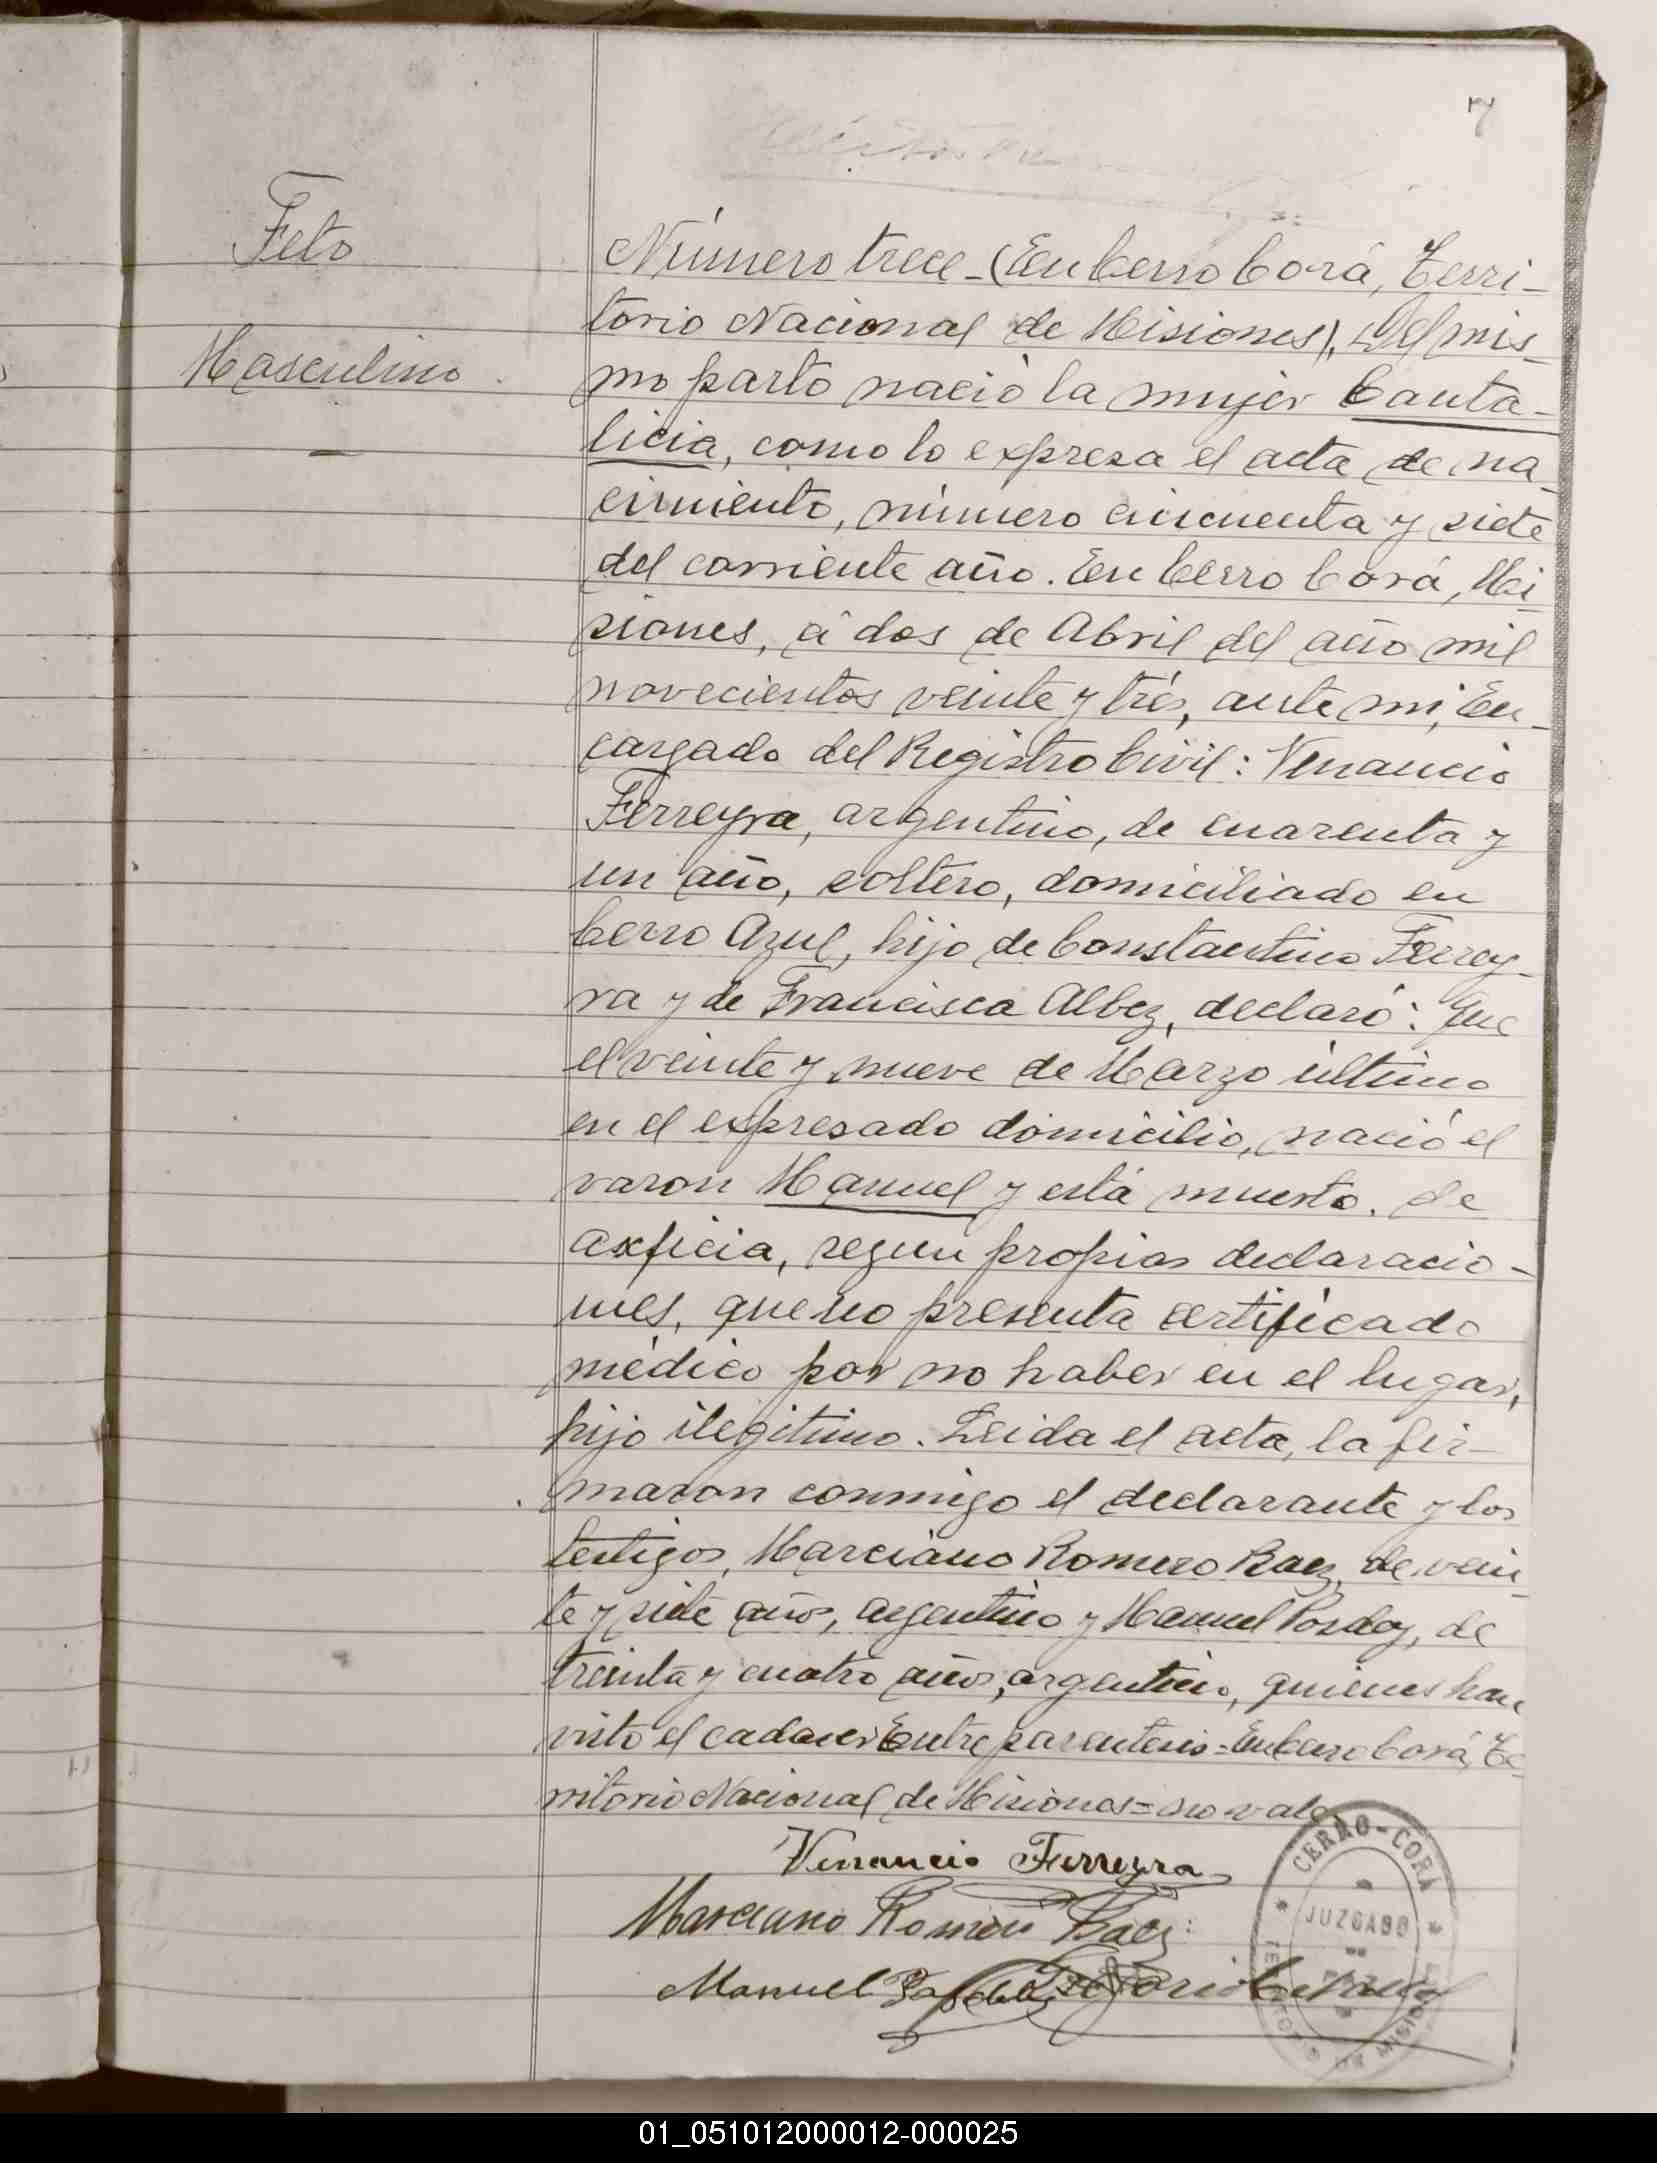 7
Feto
Masculino
Número trece - (En Cerro Corá, Terri-
torio Nacional de Misiones), Del mis-
mo parto nació la mujer Canta-
licia, como lo expresa el acta de na-
cimiento, número cincuenta y siete
del corriente año. En Cerro Corá, Mi-
siones, á dos de Abril del año mil
novecientos veinte y trés, ante mi, En-
cargado del Registro Civil: Venancio
Ferreyra, argentino, de cuarenta y
un año, soltero, domiciliado en
Cerro Azul, hijo de Constantino Ferrey-
ra y de Francisca Albez, declaró: Que
el veinte y nueve de Marzo último
en el expresado domicilio, nació el
varon Manuel y está muerto. de
axficia, segun propias declaracio-
nes, que no presenta certificado
médico por no haber en el lugar,
hijo ilegitimo. Leida el acta, la fir-
maron conmigo el declarante y los
testigos, Marciano Romero Baez, de vein-
te y siete años, argentino y Manuel, de
treinta y cuatro años, argentino, quienes han
visto el cadaver Entre parentesis = En Cerro Corá, Te-
rritorio Nacional de Misiones = no vale
Venancio Ferreyra
Marciano Romero Baez
Manuel
CERRO-CORÁ
JUZGADO
DE MISIONES
01_051012000012-000025